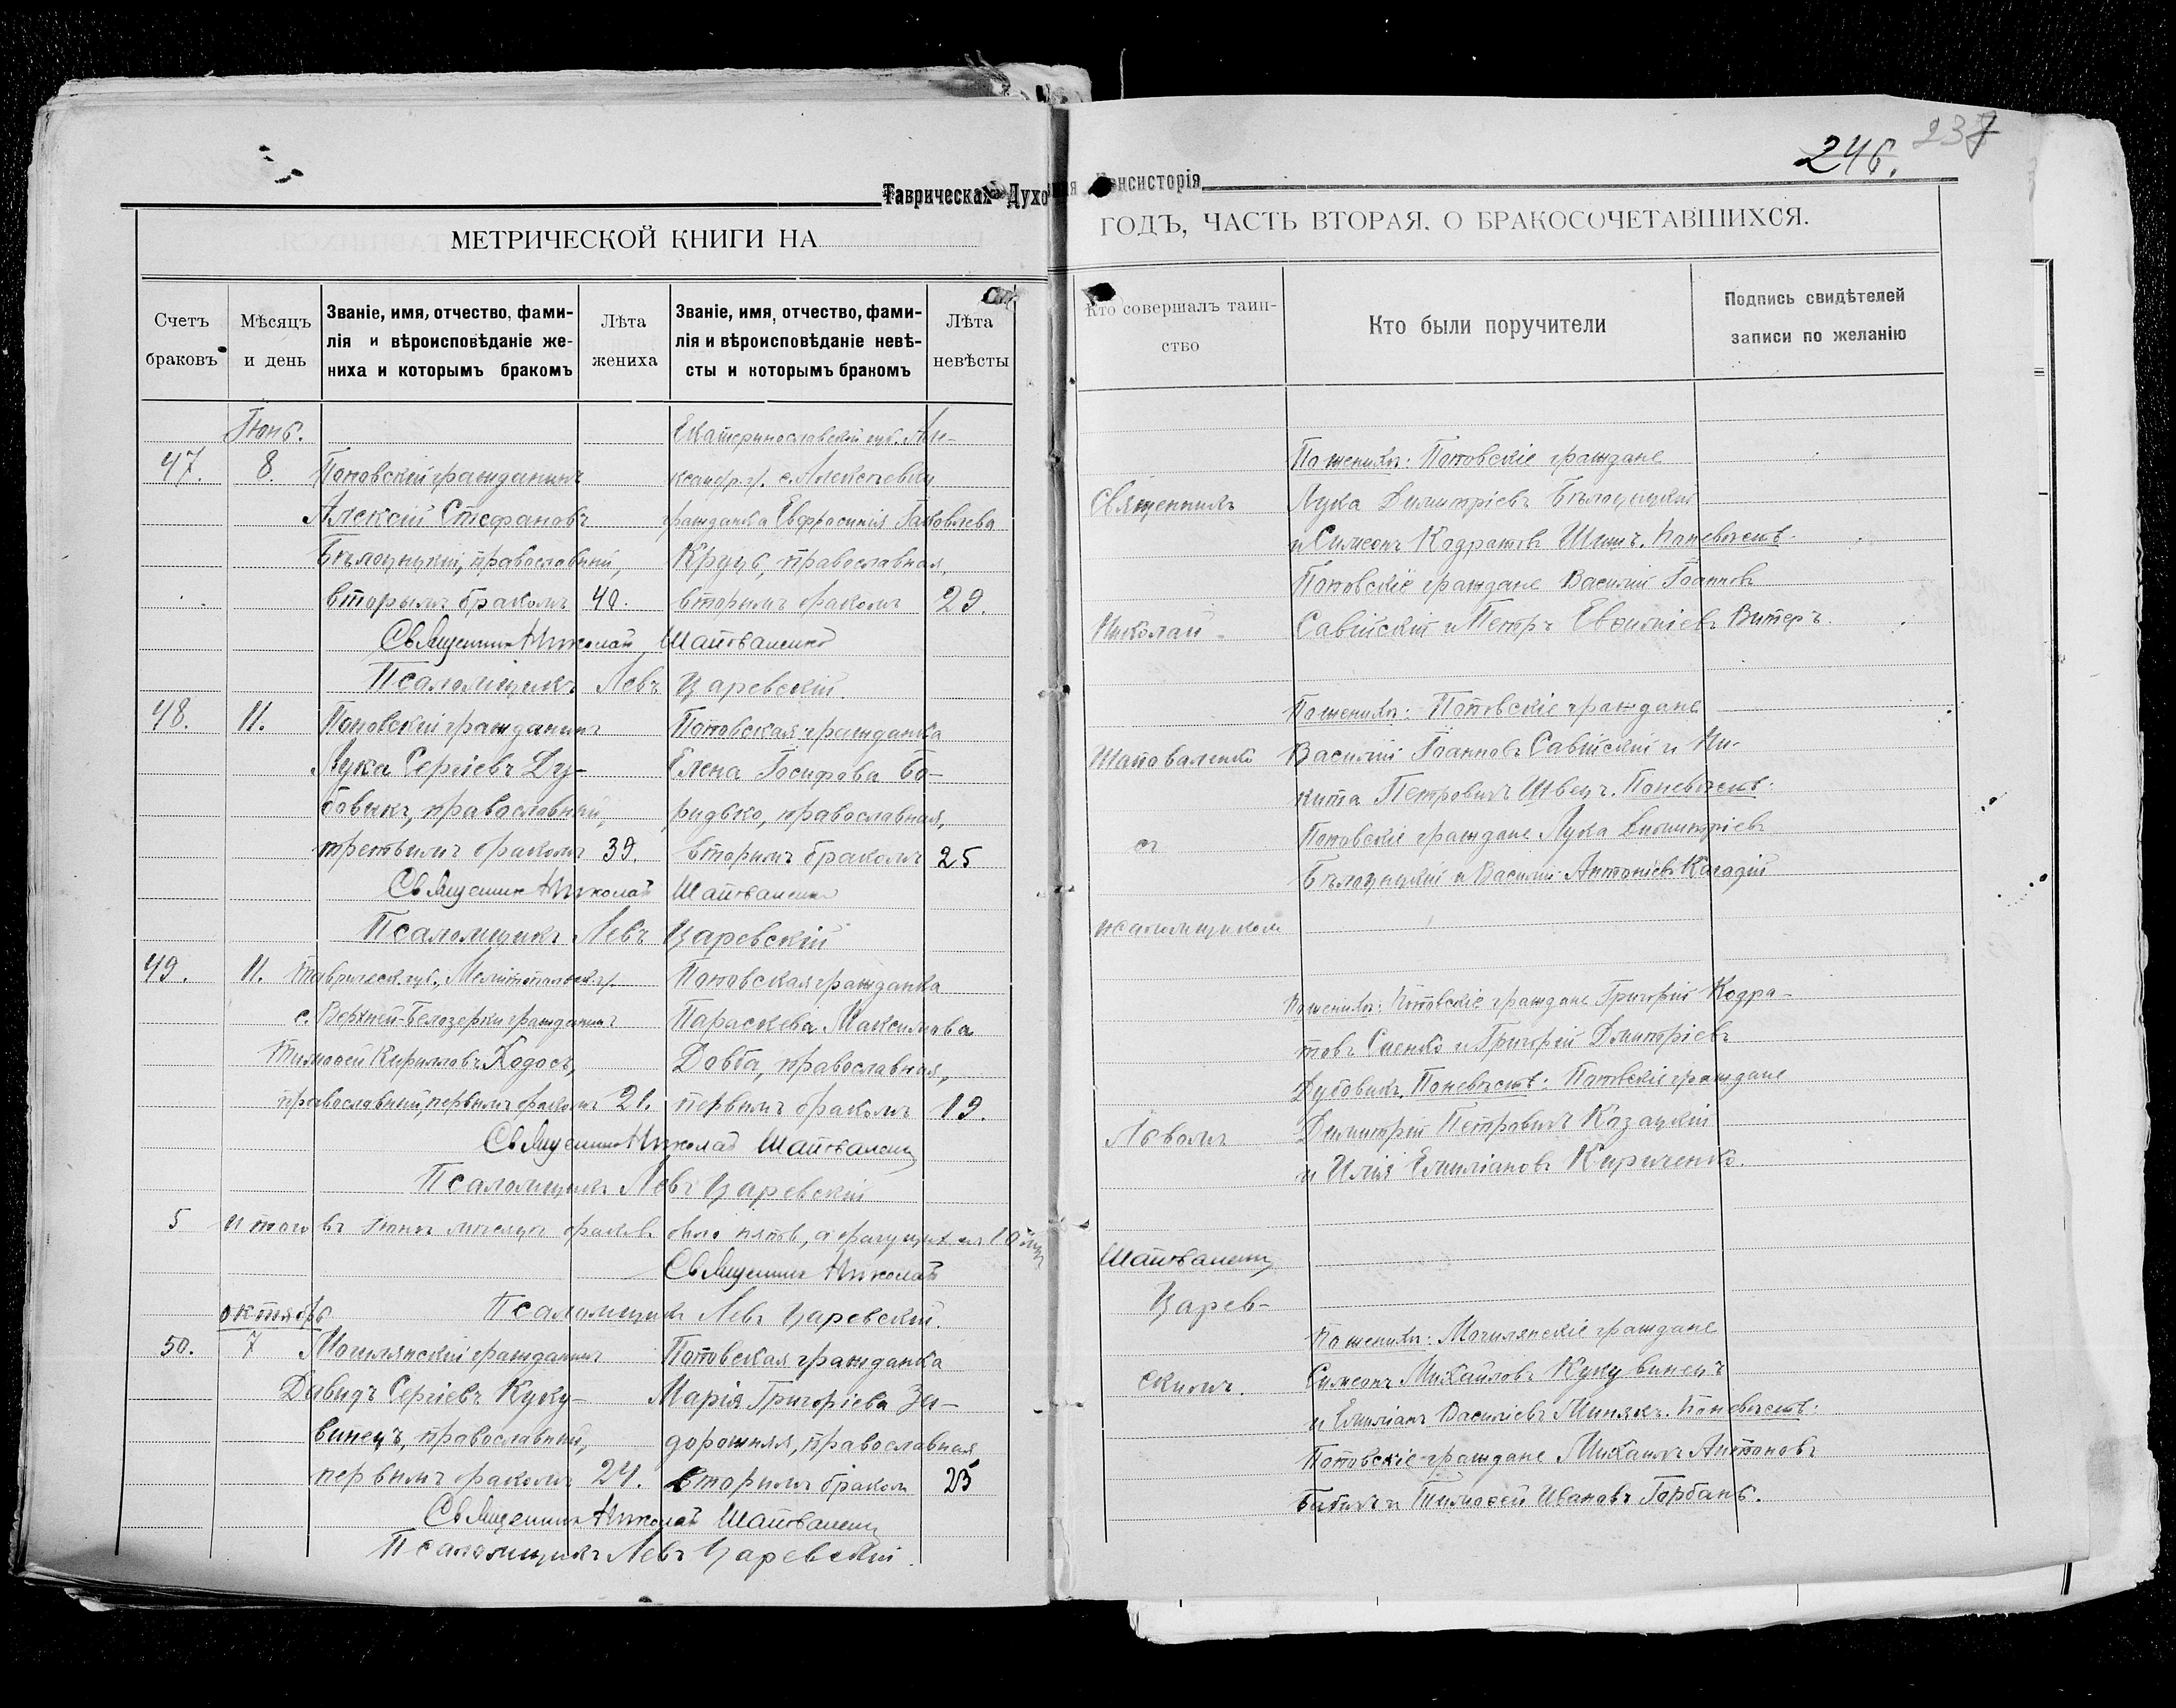 246. 237
Таврическая Духовная Консисторія
МЕТРИЧЕСКОЙ КНИГИ НА
ГОДЪ, ЧАСТЬ ВТОРАЯ. О БРАКОСОЧЕТАВШИХСЯ.
Счетъ браковъ
Мѣсяцъ и день
Званіе, имя, отчество, фами-
лія и вѣроисповѣданіе же-
ниха и которымъ бракомъ
Лѣта жениха
Званіе, имя, отчество, фами-
лія и вѣроисповѣданіе невѣ-
сты и которымъ бракомъ
Лѣта невѣсты
Кто совершалъ таин-
ство
Кто были поручители
Подпись свидѣтелей
записи по желанію
Іюнь. Екатеринославской губ. Але-
47. 8. Поповскій гражданинъ ксандр. у. с. Алексѣевки
Алексій Стефановъ гражданка Евфросинія Іаковлева
Бѣлоцицкій, православный, Круць, православная,
вторымъ бракомъ 40. вторымъ бракомъ 29.
Священникъ Николай Шаповаленко
Псаломщикъ Левъ Царевскій.
48. 11. Поповскій гражданинъ Поповская гражданка
Лука Сергіевъ Ду- Елена Іосифова Бо-
бовикъ, православный, ридько, православная,
третьимъ бракомъ 39. вторымъ бракомъ 25
Священникъ Николай Шаповаленко
Псаломщикъ Левъ Царевскій
49. 11. Таврическ. губ., Мелитопольск. у. Поповская гражданка
с. Верхней-Белозерки гражданинъ Параскева Максимова
Тимофей Кирилловъ Ходосъ, Довга, православная,
православный, первымъ бракомъ 21. первымъ бракомъ 19.
Священникъ Николай Шаповаленко
Псаломщикъ Левъ Царевскій
5 Итого въ Іюнѣ мѣсяцѣ браковъ было пять, а брачущихся 10 лицъ
Священникъ Николай
Октябрь Псаломщикъ Левъ Царевскій.
50. 7 Могилянскій гражданинъ Поповская гражданка
Давидъ Сергіевъ Куку- Марія Григоріева За-
винецъ, православный, дорожняя, православная
первымъ бракомъ 24. вторымъ бракомъ 25
Священникъ Николай Шаповаленко
Псаломщикъ Левъ Царевскій.
По женихѣ: Поповскіе граждане
Священникъ Лука Димитріевъ Бѣлоцицкій
и Симеонъ Кодратовъ Шишъ. По невѣстѣ:
Поповскіе граждане Василій Іоанновъ
Николай Савійскій и Петръ Евфиміевъ Витеръ.
По женихѣ: Поповскіе граждане
Шаповаленко Василій Іоанновъ Савійскій и Ни-
кита Петровичъ Швецъ. По невѣстѣ:
съ Поповскіе граждане Лука Димитріевъ
Бѣлоцицкій и Василій Антоніевъ
псаломщикомъ
По женихѣ: Поповскіе граждане Григорій Кодра-
товъ и Григорій Димитріевъ
Дубовикъ. По невѣстѣ: Поповскіе граждане
Львомъ Димитрій Петровичъ Козацкій
и Илія Емиліановъ Кириченко.
Шаповаленко
Царев-
По женихѣ: Могилянскіе граждане
скимъ. Симеонъ Михайловъ Кукувинецъ
и Емиліанъ Василіевъ Минякъ. По невѣстѣ:
Поповскіе граждане Михаилъ Антоновъ
Бабикъ и Тимофей Ивановъ Горбань.